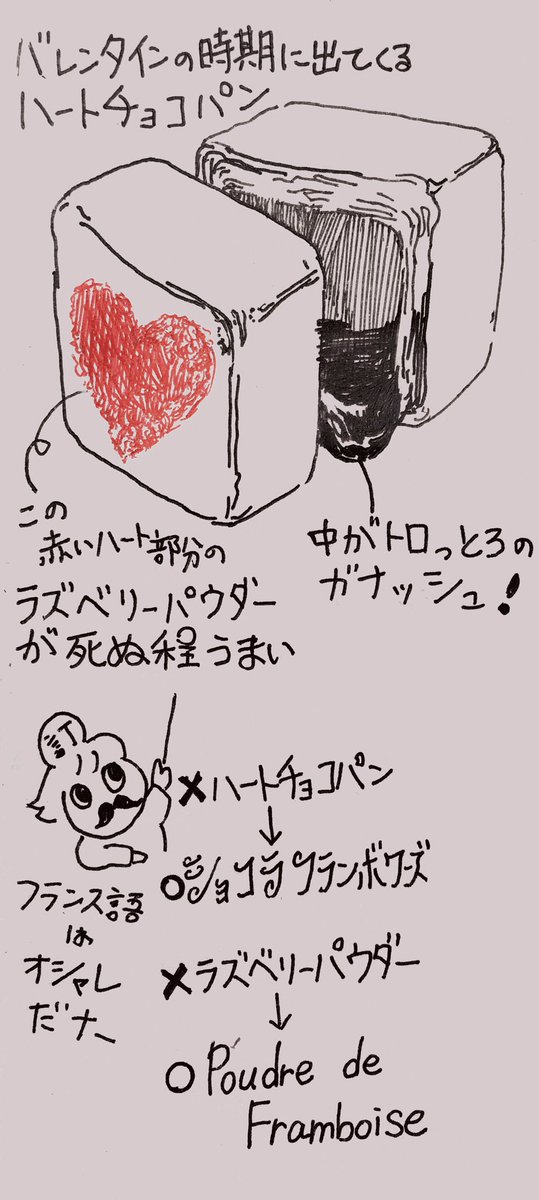 バレンタインの時期に出てくる
ハートチョコパン
この
赤いハート部分の
ラズベリーパウダー
が死ぬ程うまい
中がトロっとろの
ガナッシュ!
フランス語
は
オシャレ
だナ、
×ハートチョコパン
↓
○ショコラフランボワーズ
×ラズベリーパウダー
↓
○Poudre de
Framboise